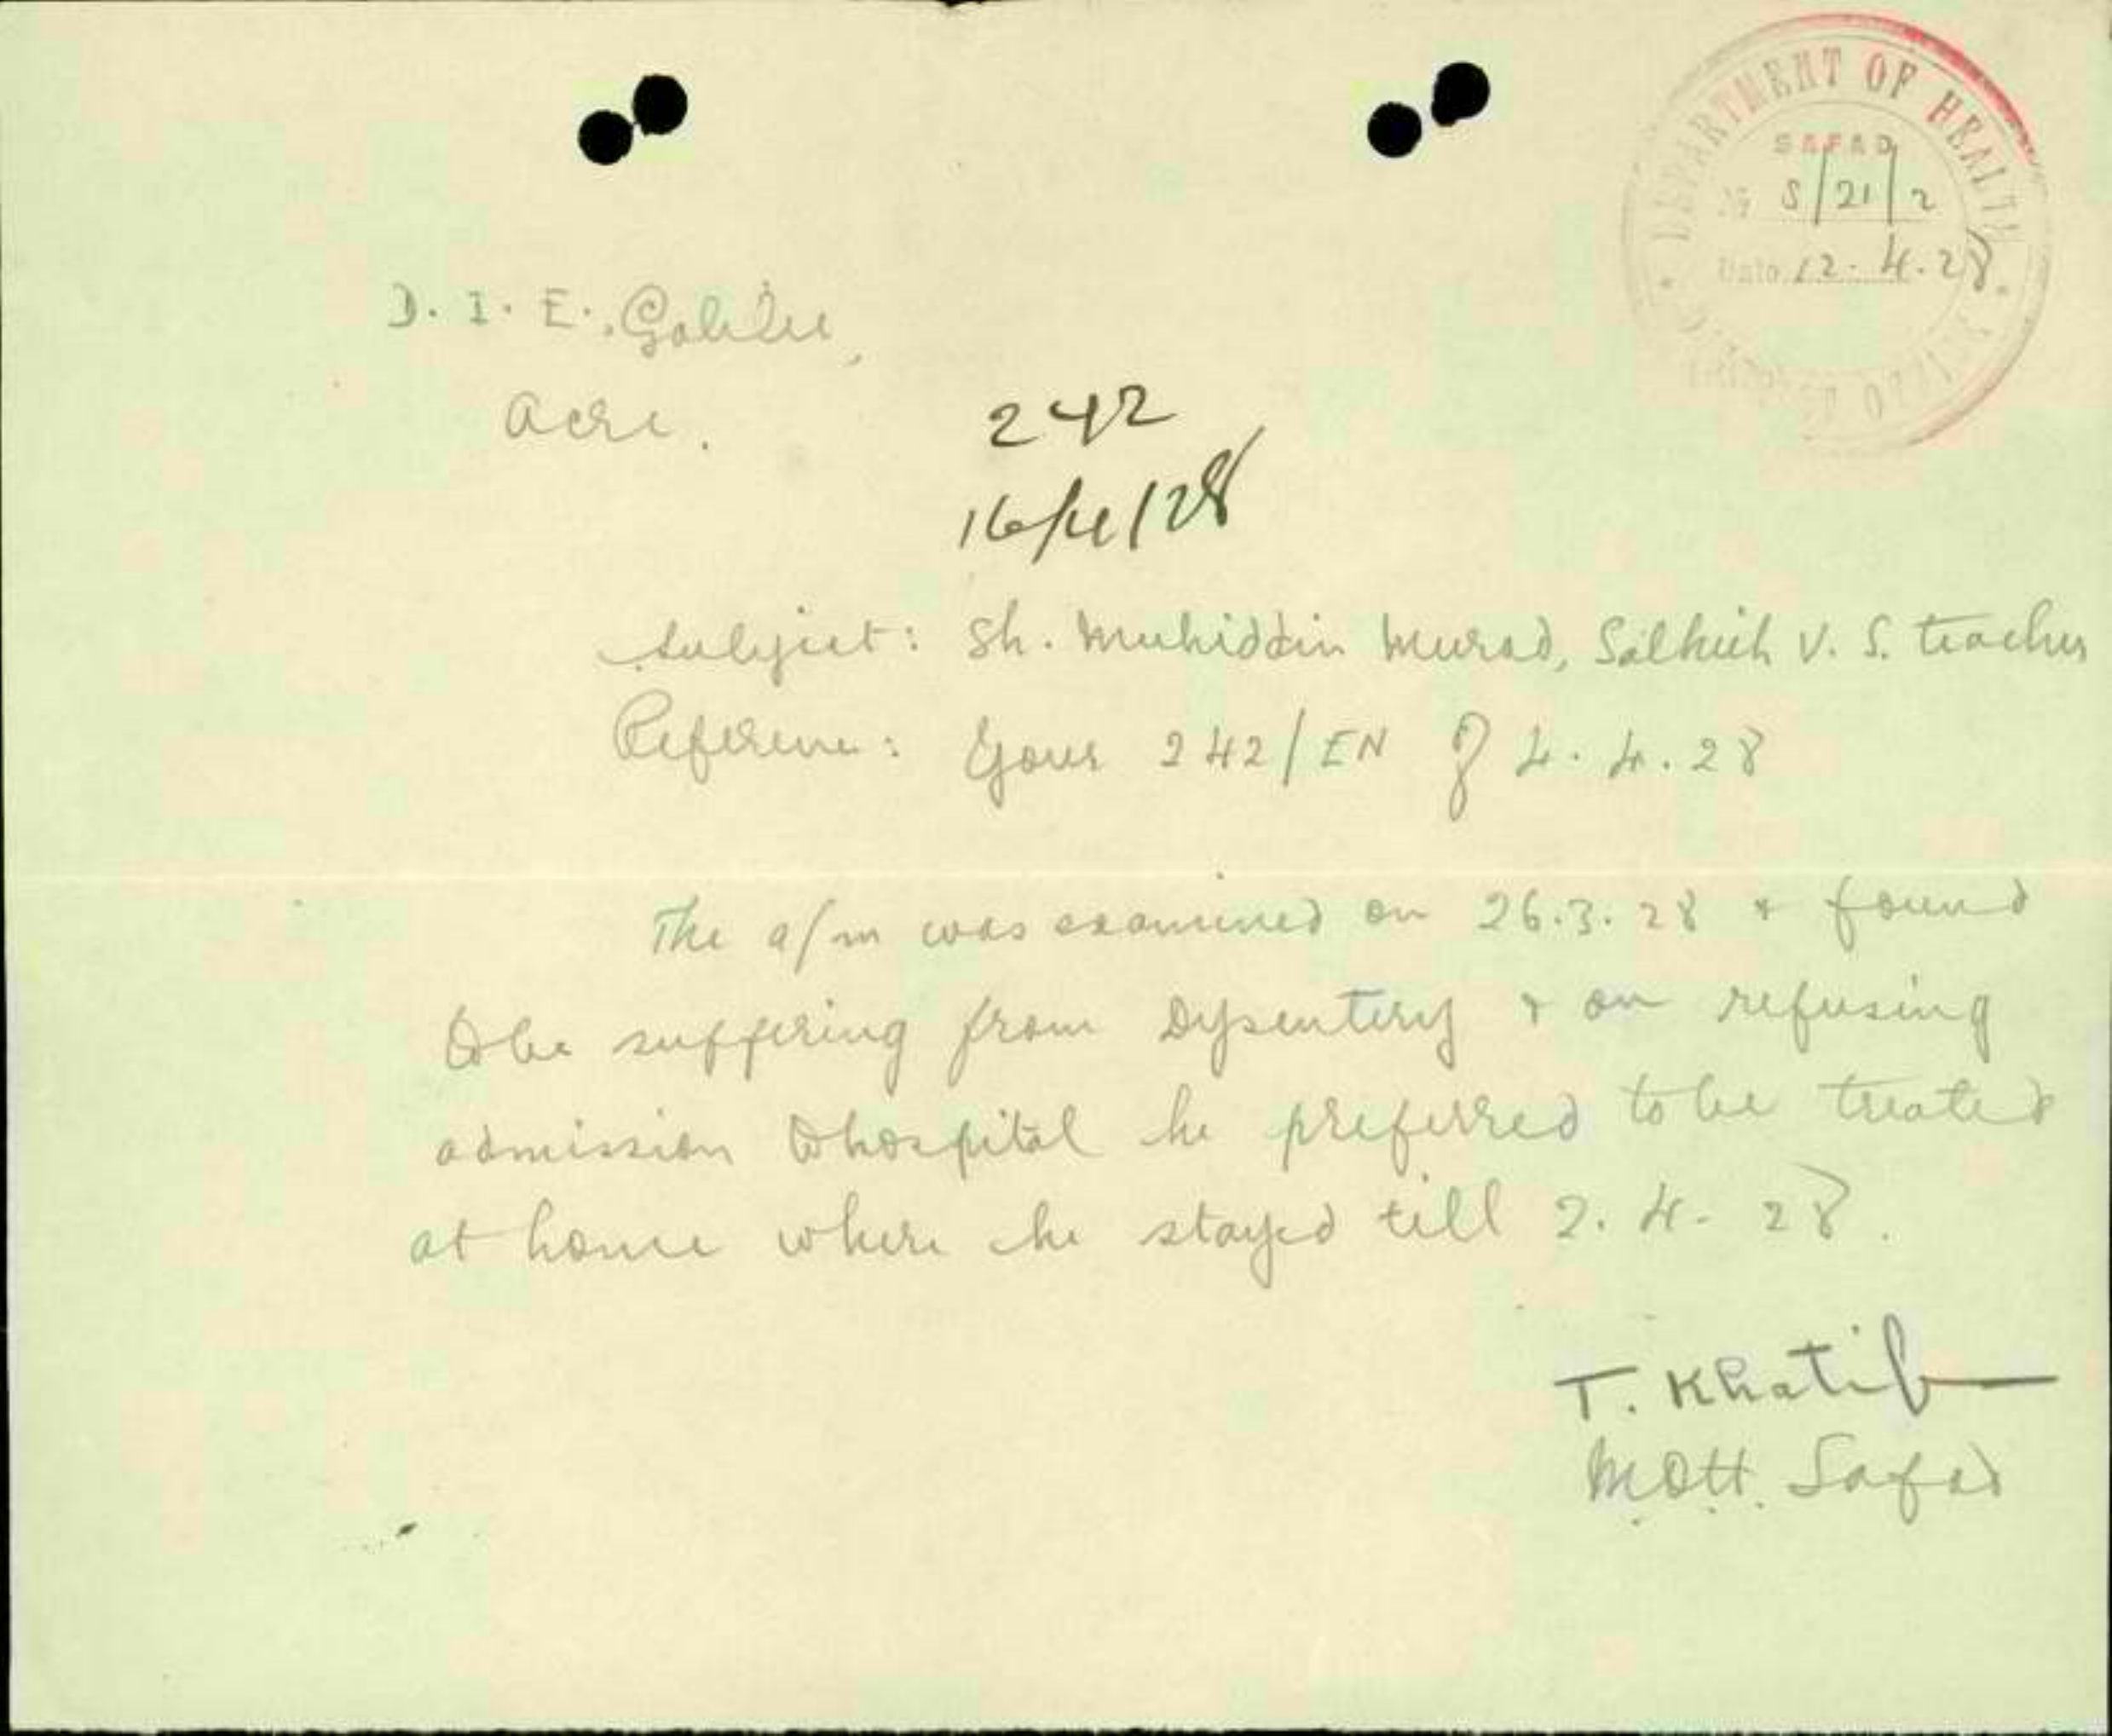 DEPARTMENT OF HEALTH
SAFAD
№ S/21/2
Date 12.4.28.
D. I. E., Galilee,
Acre.
242
16/4/28
Subject: Sh. Muhiddin Murad, Salhieh V. S. teacher
Reference: Your 242/EN of 4.4.28
The a/m was examined on 26.3.28 & found
to be suffering from Dysentery & on refusing
admission to hospital he preferred to be treated
at home where he stayed till 2.4.28.
T. Khatib
Safad